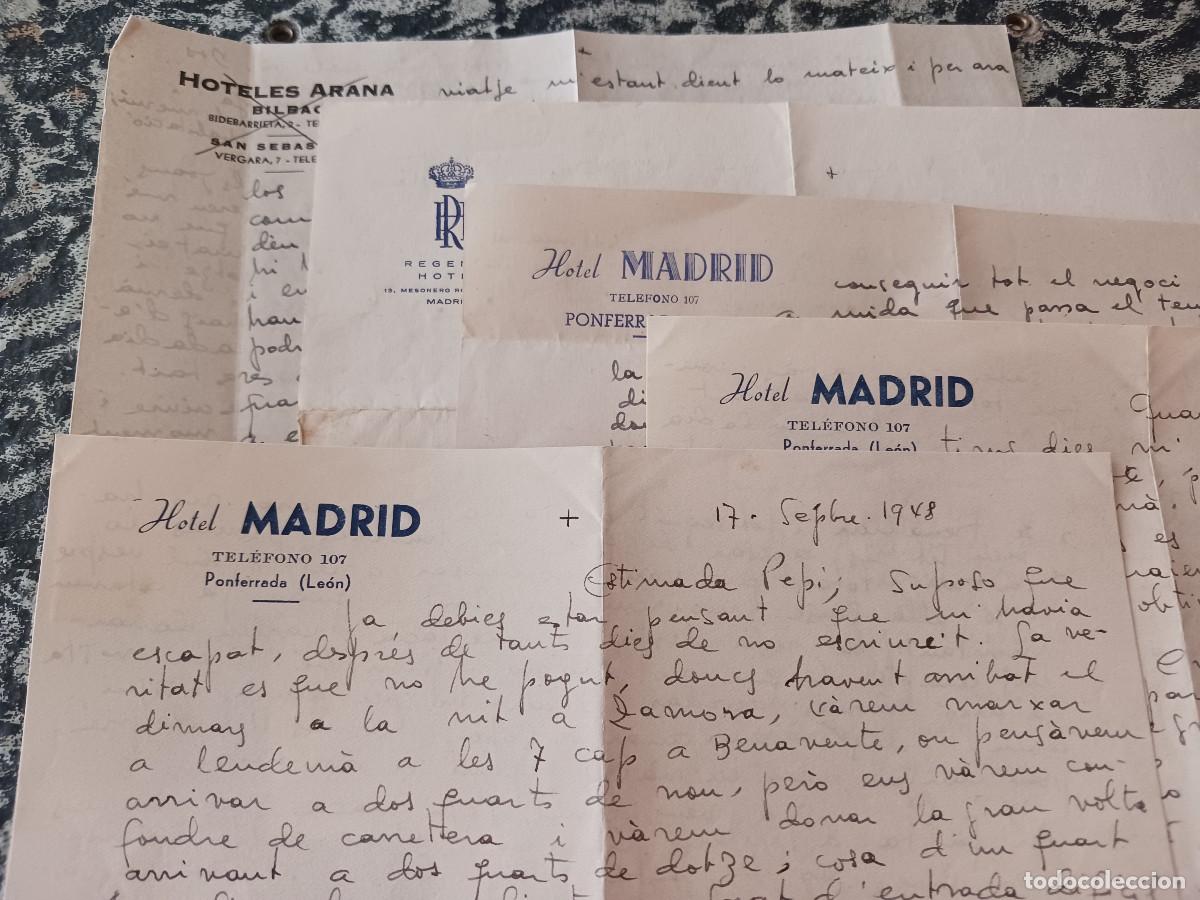 HOTELES ARANA
BILBAO
BIDEBARRIETA, 2 - TE
SAN SEBAS
VERGARA, 7 - TELE
viatje m'estant dient lo mateix i per ara
los
com
dèn
hi
i en
han
podr
res
REGEN
HOT
13, MESONERO RO
MADRI
Hotel MADRID
TELEFONO 107
PONFERR
conseguir tot el negoci
a mida que passa el tem
la
di
Hotel MADRID
TELÉFONO 107
Ponferrada (León)
Qua
tims dies mi
Hotel MADRID
TELÉFONO 107
Ponferrada (León)
+
17. Sepbre. 1948
Estimada Pepi; Suposo que
ja debies estar pensant que m'havia
escapat, després de tants dies de no escriure't. La ve-
ritat es que no he pogut, doncs havent arribat el
dimars a la nit a Zamora, vàrem marxar
a l'endemà a les 7 cap a Benavente, on pensàvem
arrivar a dos quarts de nou, però ens vàrem con-
fondre de carretera i vàrem donar la gran volta
arrivant a dos quarts de dotze; cosa d'un quart
d'entrada
todocoleccion